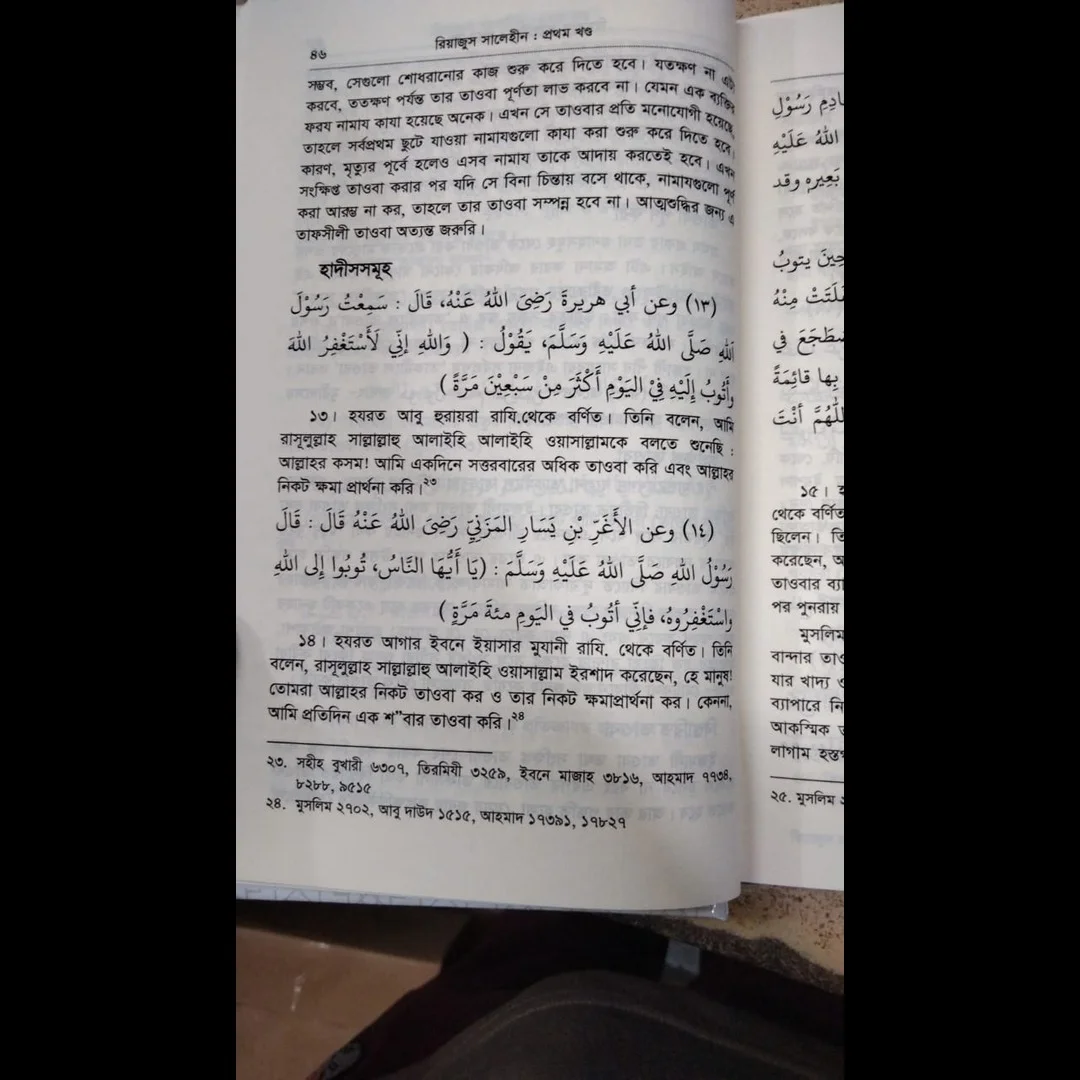 ৪৬
রিয়াজুস সালেহীন : প্রথম খণ্ড
সম্ভব, সেগুলো শোধরানোর কাজ শুরু করে দিতে হবে। যতক্ষণ না এটা
করবে, ততক্ষণ পর্যন্ত তার তাওবা পূর্ণতা লাভ করবে না। যেমন এক ব্যক্তির
ফরয নামায কাযা হয়েছে অনেক। এখন সে তাওবার প্রতি মনোযোগী হয়েছে,
তাহলে সর্বপ্রথম ছুটে যাওয়া নামাযগুলো কাযা করা শুরু করে দিতে হবে।
কারণ, মৃত্যুর পূর্বে হলেও এসব নামায তাকে আদায় করতেই হবে। এখন
সংক্ষিপ্ত তাওবা করার পর যদি সে বিনা চিন্তায় বসে থাকে, নামাযগুলো পূর্ণ
করা আরম্ভ না কর, তাহলে তার তাওবা সম্পন্ন হবে না। আত্মশুদ্ধির জন্য এ
তাফসীলী তাওবা অত্যন্ত জরুরি।
হাদীসসমূহ
(١٣) وعن أبي هريرة رَضِىَ اللهُ عَنْهُ، قَالَ : سَمِعْتُ رَسُوْلَ
اللهِ صَلَّى اللهُ عَلَيْهِ وَسَلَّمَ، يَقُوْلُ : ( وَاللهِ إنِّي لَأَسْتَغْفِرُ اللهَ
وأَتُوبُ إِلَيْهِ فِيْ اليَوْمِ أَكْثَرَ مِنْ سَبْعِيْنَ مَرَّةً )
১৩। হযরত আবু হুরায়রা রাযি.থেকে বর্ণিত। তিনি বলেন, আমি
রাসূলুল্লাহ সাল্লাল্লাহু আলাইহি আলাইহি ওয়াসাল্লামকে বলতে শুনেছি :
আল্লাহর কসম! আমি একদিনে সত্তরবারের অধিক তাওবা করি এবং আল্লাহর
নিকট ক্ষমা প্রার্থনা করি।২৩
(١٤) وعن الأَغَرِّ بْنِ يَسَارِ المَزَنِيّ رَضِىَ اللهُ عَنْهُ قَالَ : قَالَ
رَسُوْلُ اللهِ صَلَّى اللهُ عَلَيْهِ وَسَلَّمَ : (يَا أَيُّهَا النَّاسُ، تُوبُوا إلى اللهِ
واسْتَغْفِرُوهُ، فإنِّي أتُوبُ في اليَومِ مئةَ مَرَّةٍ )
১৪। হযরত আগার ইবনে ইয়াসার মুযানী রাযি. থেকে বর্ণিত। তিনি
বলেন, রাসূলুল্লাহ সাল্লাল্লাহু আলাইহি ওয়াসাল্লাম ইরশাদ করেছেন, হে মানুষ!
তোমরা আল্লাহর নিকট তাওবা কর ও তার নিকট ক্ষমাপ্রার্থনা কর। কেননা,
আমি প্রতিদিন এক শ”বার তাওবা করি।২৪
২৩. সহীহ বুখারী ৬৩০৭, তিরমিযী ৩২৫৯, ইবনে মাজাহ ৩৮১৬, আহমাদ ৭৭৩৪,
৮২৮৮, ৯৫১৫
২৪. মুসলিম ২৭০২, আবু দাউদ ১৫১৫, আহমাদ ১৭৩৯১, ১৭৮২৭
رَسُوْلِ
اللهُ عَلَيْهِ
بَعِيرِه وقد
حِينَ يتوبُ
مِنْهُ
في
بِها قائِمَةً
أنْتَ
১৫।
থেকে বর্ণিত
ছিলেন।
করেছেন,
তাওবার
পর পুনরায়
মুসলিম
বান্দার
যার খাদ্য
ব্যাপারে
আকস্মিক
লাগাম
২৫. মুসলিম